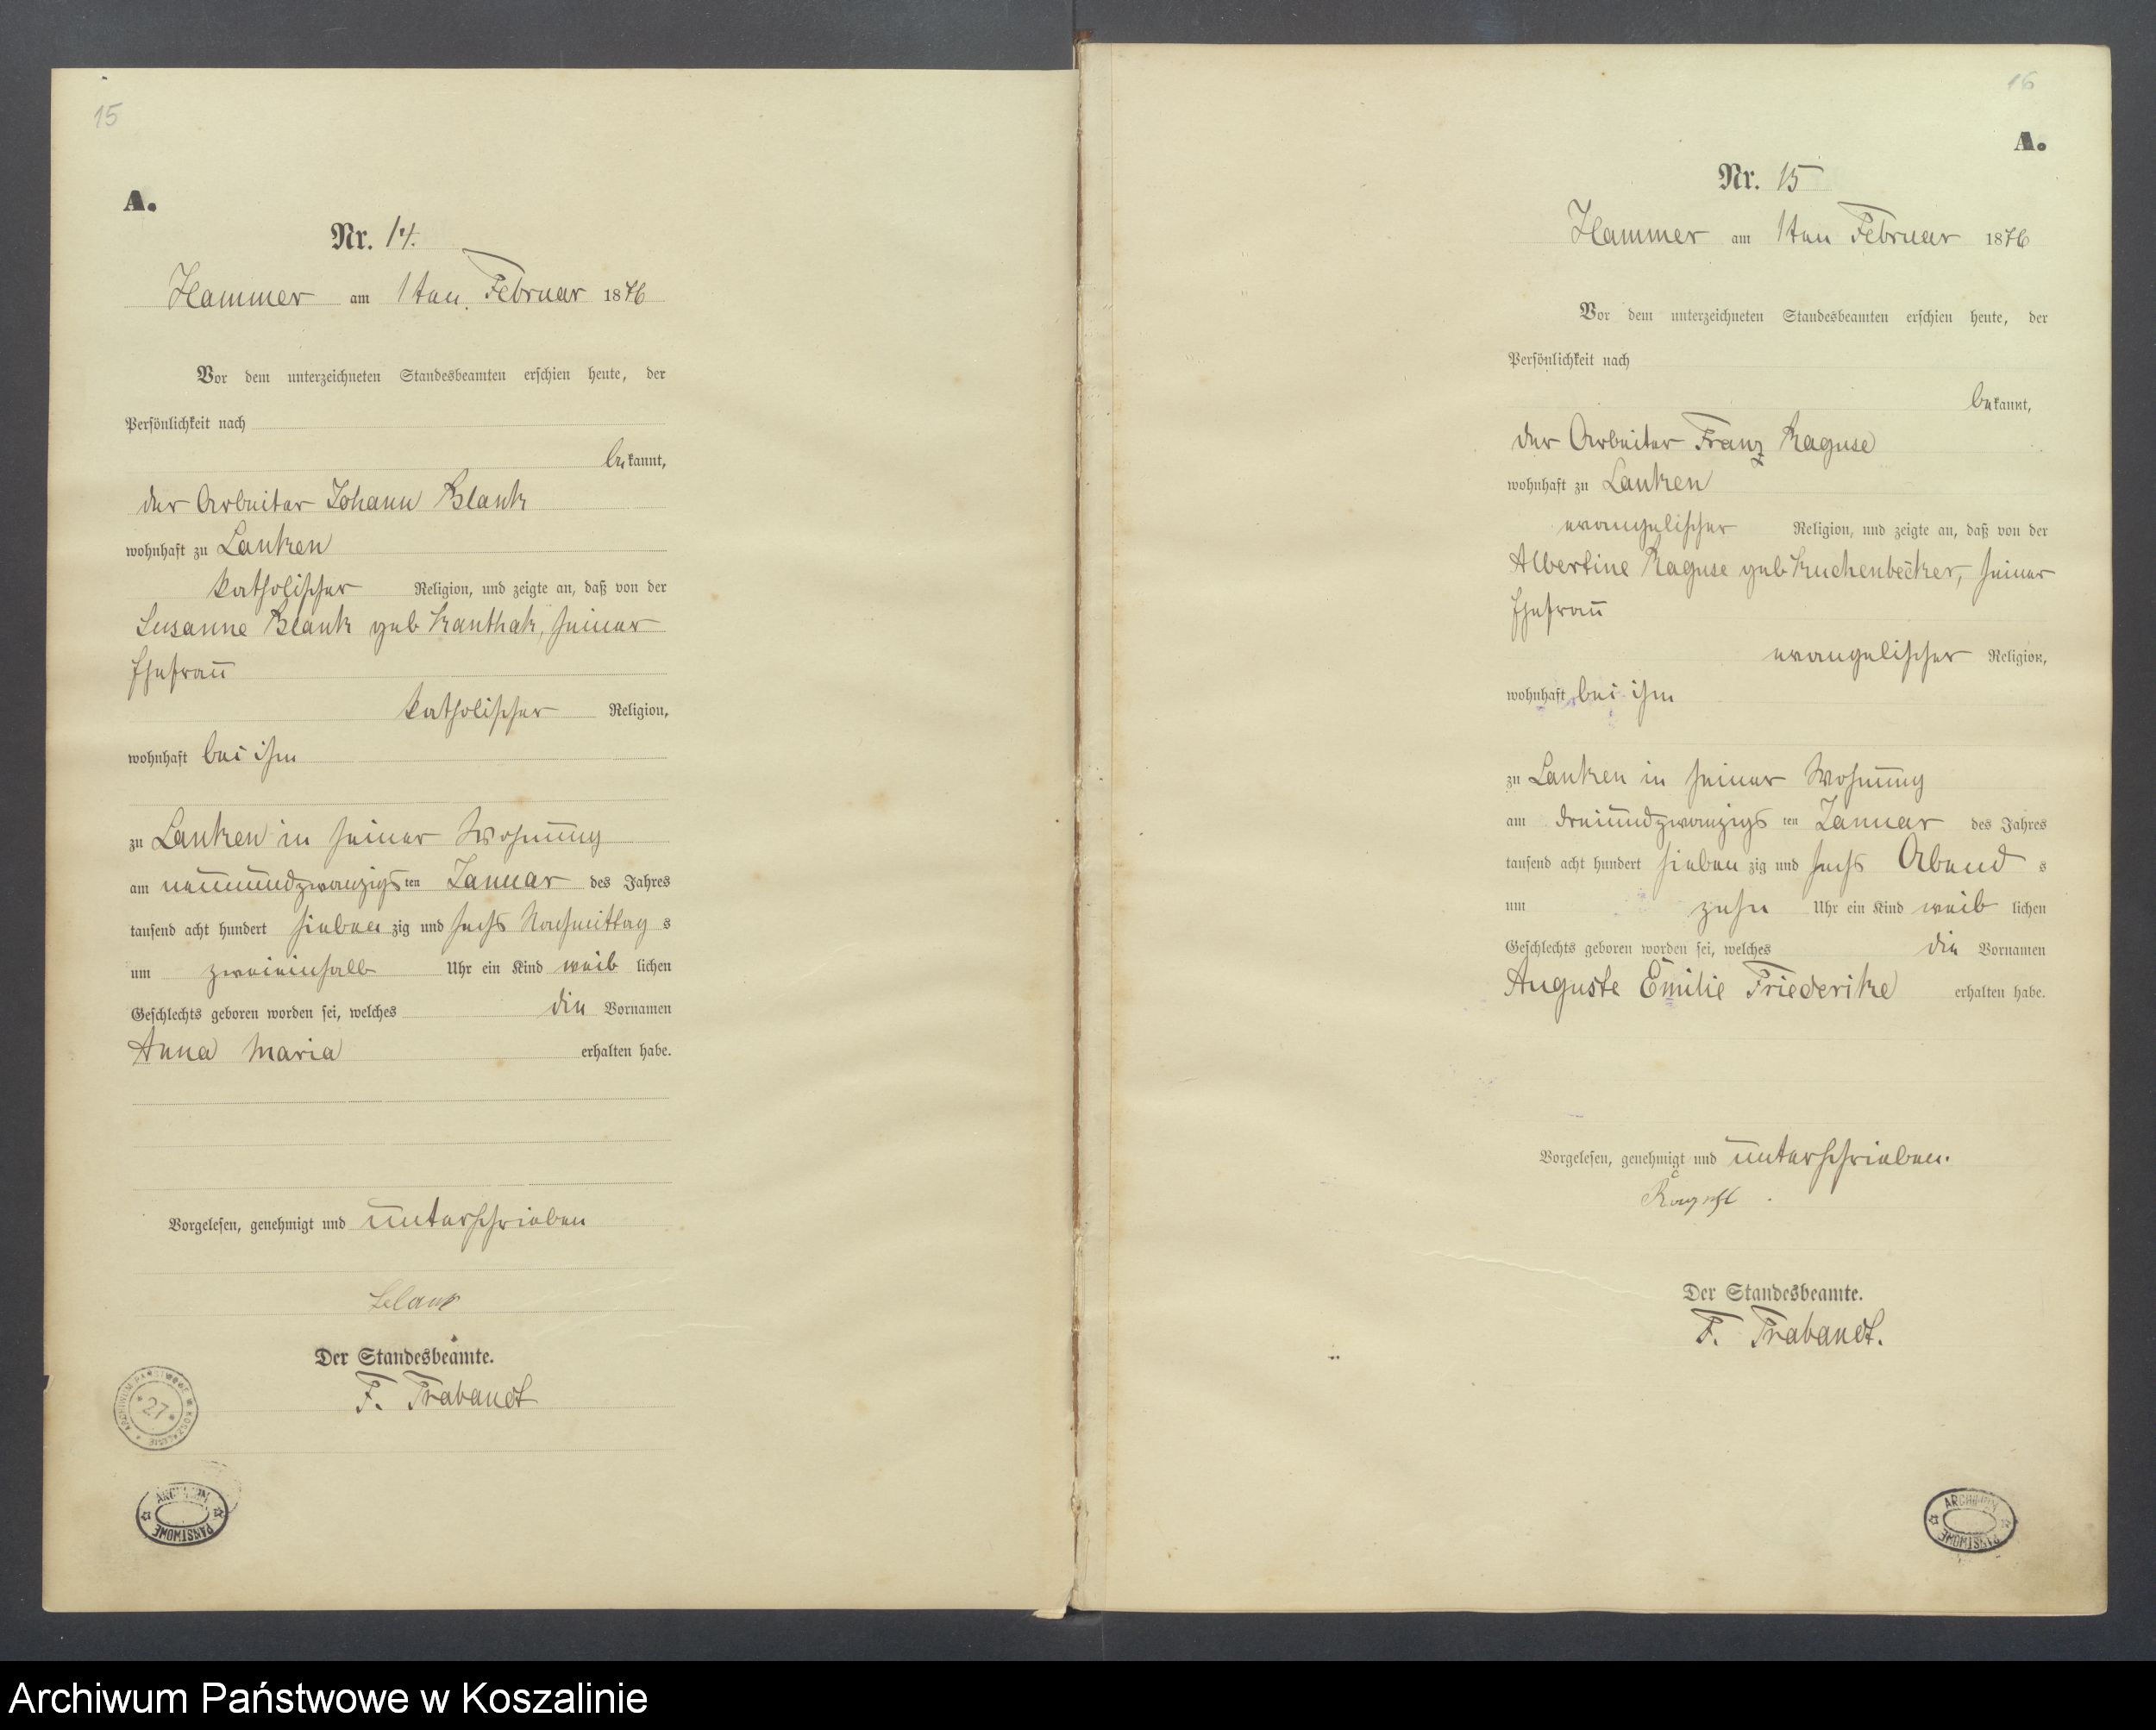 15
A.
Nr. 14.
Hammer am 1ten Februar 1876
Vor dem unterzeichneten Standesbeamten erschien heute, der
Persönlichkeit nach
bekannt,
der Arbeiter Johann Blank
wohnhaft zu Lanken
katholischer Religion, und zeigte an, daß von der
Susanne Blank geb Kanthak, seiner
Ehefrau
katholischer Religion,
wohnhaft bei ihm
zu Lanken in seiner Wohnung
am neunundzwanzigsten Januar des Jahres
tausend acht hundert siebenzig und sechs Nachmittags
um zweieinhalb Uhr ein Kind weiblichen
Geschlechts geboren worden sei, welches die Vornamen
Anna Maria erhalten habe.
Vorgelesen, genehmigt und unterschrieben
Blank
Der Standesbeamte.
F. Trabandt
ARCHIWUM PAŃSTWOWE W KOSZALINIE
* 27 *
ARCHIWUM
PAŃSTWOWE
16
A.
Nr. 15
Hammer am 1ten Februar 1876
Vor dem unterzeichneten Standesbeamten erschien heute, der
Persönlichkeit nach
bekannt,
der Arbeiter Franz Raguse
wohnhaft zu Lanken
evangelischer Religion, und zeigte an, daß von der
Albertine Raguse geb Kuchenbecker, seiner
Ehefrau
evangelischer Religion,
wohnhaft bei ihm
zu Lanken in seiner Wohnung
am dreiundzwanzigsten Januar des Jahres
tausend acht hundert siebenzig und sechs Abends
um zehn Uhr ein Kind weiblichen
Geschlechts geboren worden sei, welches die Vornamen
Auguste Emilie Friederike erhalten habe.
Vorgelesen, genehmigt und unterschrieben.
Der Standesbeamte.
F. Trabandt.
ARCHIWUM
PAŃSTWOWE
Archiwum Państwowe w Koszalinie